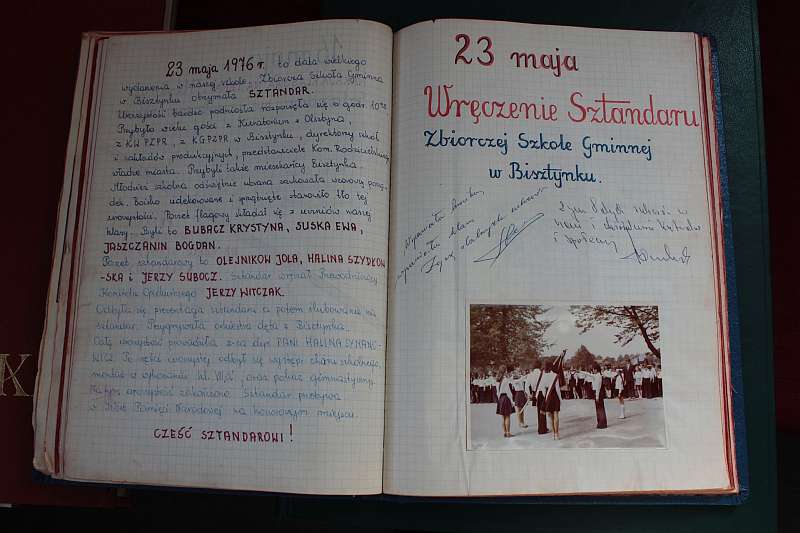 23 maja 1976 r. to data wielkiego
wydarzenia w naszej szkole. Zbiorcza Szkoła Gminna
w Bisztynku otrzymała SZTANDAR.
Uroczystość bardzo podniosła rozpoczęła się o godz. 10⁰⁰
Przybyło wielu gości z Kuratorium z Olsztyna,
z KW PZPR, z KG PZPR w Bisztynku, dyrektorzy szkół
i zakładów produkcyjnych, przedstawiciele Kom. Rodzicielskiego,
władze miasta. Przybyli także mieszkańcy Bisztynka.
Młodzież szkolna odświętnie ubrana zachowała wzorowy porzą-
dek. Boisko udekorowane i sprzątnięte stanowiło tło tej
uroczystości. Poczet flagowy składał się z uczniów naszej
klasy. Byli to BUBACZ KRYSTYNA, SUSKA EWA,
JASZCZANIN BOGDAN.
Poczet sztandarowy to OLEJNIKÓW JOLA, HALINA SZYDŁOW
-SKA i JERZY SUBOCZ. Sztandar wręczał Przewodniczący
Komitetu Opiekuńczego JERZY WITCZAK.
Odbyła się prezentacja sztandaru a potem ślubowanie na
sztandar. Przygrywała orkiestra dęta z Bisztynka.
Całą uroczystość prowadziła z-ca dyr. PANI HALINA
Po części oficjalnej odbył się występ chóru szkolnego,
montaż w wykonaniu kl. oraz pokaz gimnastyczny.
Na tym uroczystość zakończono. Sztandar przebywa
w Izbie Pamięci Narodowej na honorowym miejscu.
CZEŚĆ SZTANDAROWI!
23 maja
Wręczenie Sztandaru
Zbiorczej Szkole Gminnej
w Bisztynku.
K